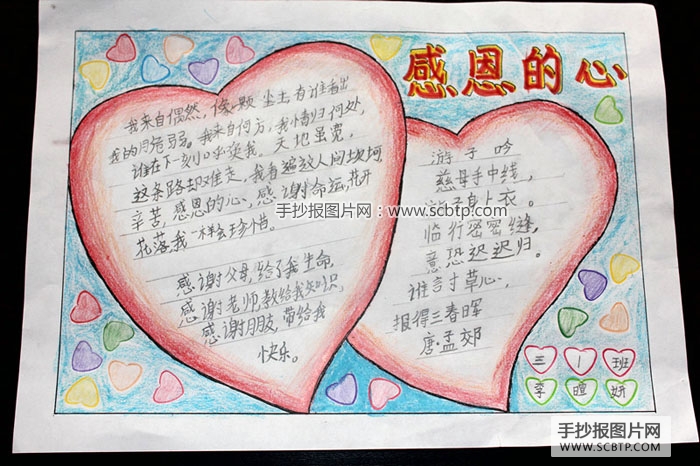 感恩的心
我来自偶然,像一颗尘土,有谁看出
我的脆弱。我来自何方,我情归何处,
谁在下一刻呼唤我。天地虽宽,
这条路却难走,我看遍这人间坎坷
辛苦,感恩的心,感谢命运,花开
花落,我一样会珍惜。
感谢父母,给了我生命,
感谢老师,教给我知识,
感谢朋友,带给我
快乐。
游子吟
慈母手中线,
子身上衣。
临行密密缝,
意恐迟迟归。
谁言寸草心,
报得三春晖
唐·孟郊
三 1 班
李 暄 妍
手抄报图片网:www.scbtp.com
手抄报图片网
WWW.SCBTP.COM